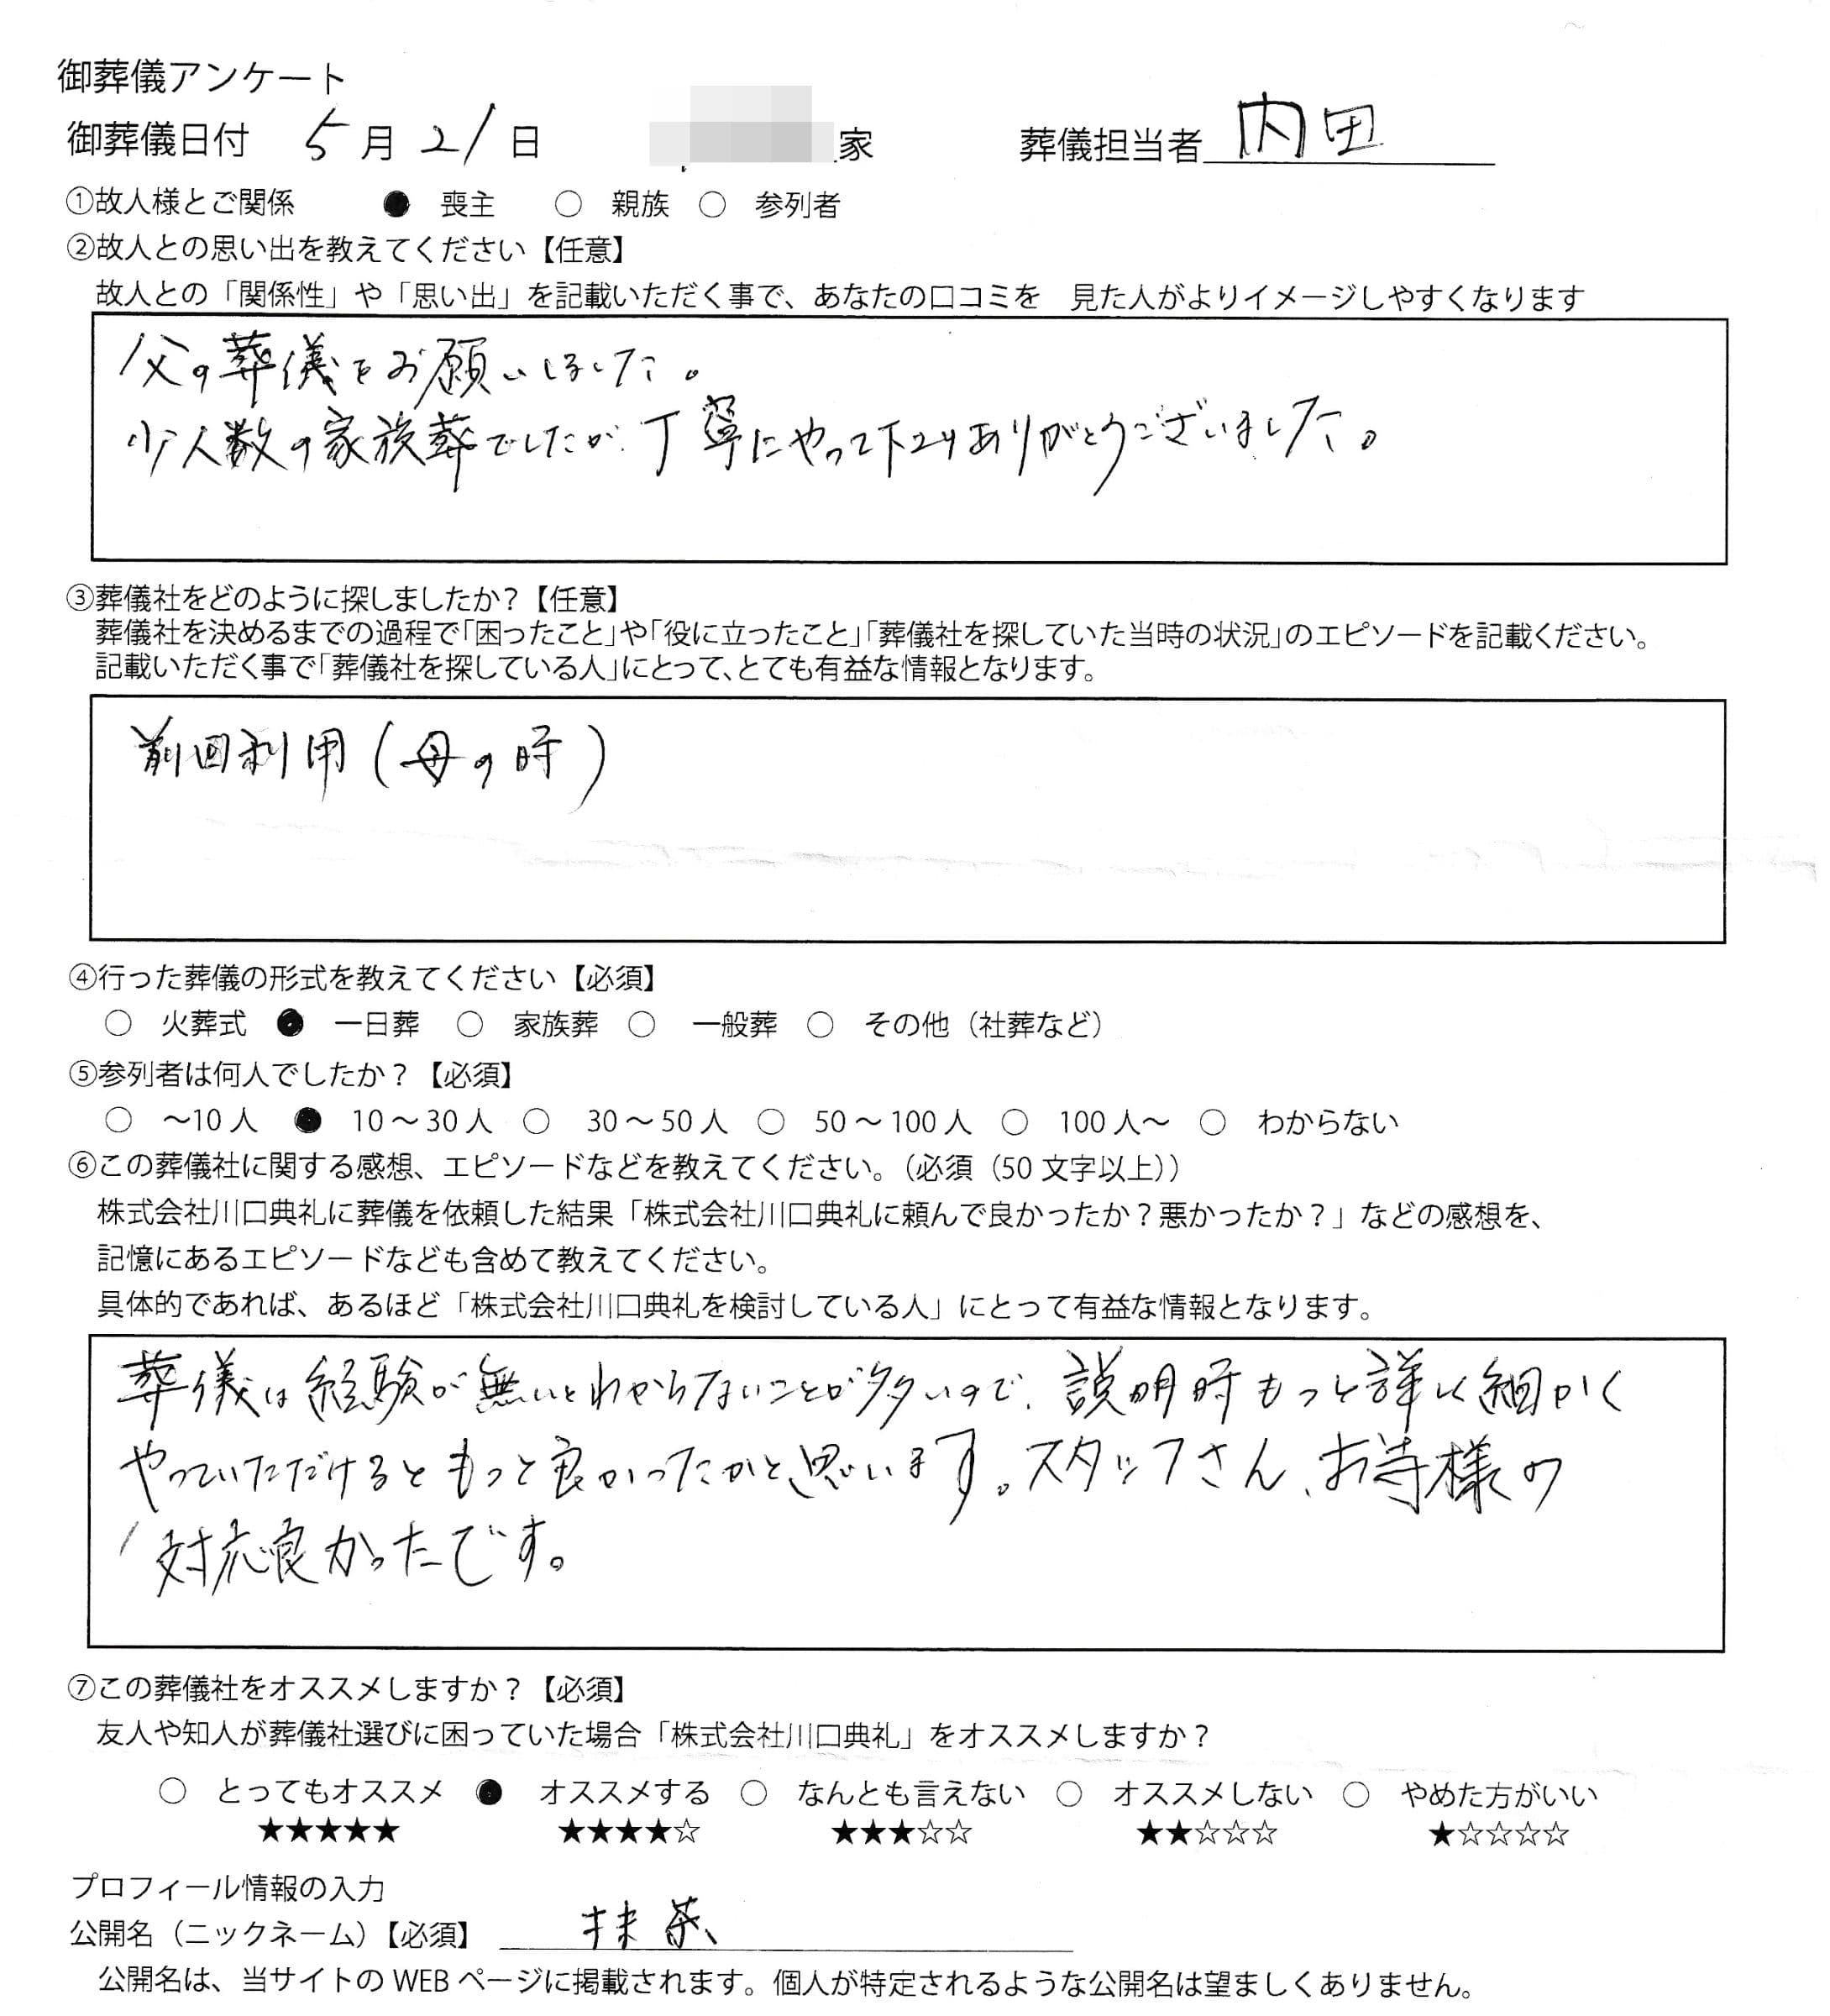 御葬儀アンケート
御葬儀日付 5月21日 家 葬儀担当者 内田
①故人様とご関係 ● 喪主 ○ 親族 ○ 参列者
②故人との思い出を教えてください【任意】
故人との「関係性」や「思い出」を記載いただく事で、あなたの口コミを 見た人がよりイメージしやすくなります
父の葬儀をお願いしました。
少人数の家族葬でしたが、丁寧にやって下さりありがとうございました。
③葬儀社をどのように探しましたか?【任意】
葬儀社を決めるまでの過程で「困ったこと」や「役に立ったこと」「葬儀社を探していた当時の状況」のエピソードを記載ください。
記載いただく事で「葬儀社を探している人」にとって、とても有益な情報となります。
前回利用(母の時)
④行った葬儀の形式を教えてください【必須】
○ 火葬式 ● 一日葬 ○ 家族葬 ○ 一般葬 ○ その他（社葬など）
⑤参列者は何人でしたか？【必須】
○ ～10人 ● 10～30人 ○ 30～50人 ○ 50～100人 ○ 100人～ ○ わからない
⑥この葬儀社に関する感想、エピソードなどを教えてください。（必須（50文字以上））
株式会社川口典礼に葬儀を依頼した結果「株式会社川口典礼に頼んで良かったか？悪かったか？」などの感想を、
記憶にあるエピソードなども含めて教えてください。
具体的であれば、あるほど「株式会社川口典礼を検討している人」にとって有益な情報となります。
葬儀は経験が無いとわからないことが多いので、説明時もっと詳しく細かく
やっていただけるともっと良かったかと思います。スタッフさん、お寺様の
対応良かったです。
⑦この葬儀社をオススメしますか？【必須】
友人や知人が葬儀社選びに困っていた場合「株式会社川口典礼」をオススメしますか？
○ とってもオススメ ● オススメする ○ なんとも言えない ○ オススメしない ○ やめた方がいい
★★★★★ ★★★★☆ ★★★☆☆ ★★☆☆☆ ★☆☆☆☆
プロフィール情報の入力
公開名（ニックネーム）【必須】 抹茶
公開名は、当サイトのWEBページに掲載されます。個人が特定されるような公開名は望ましくありません。